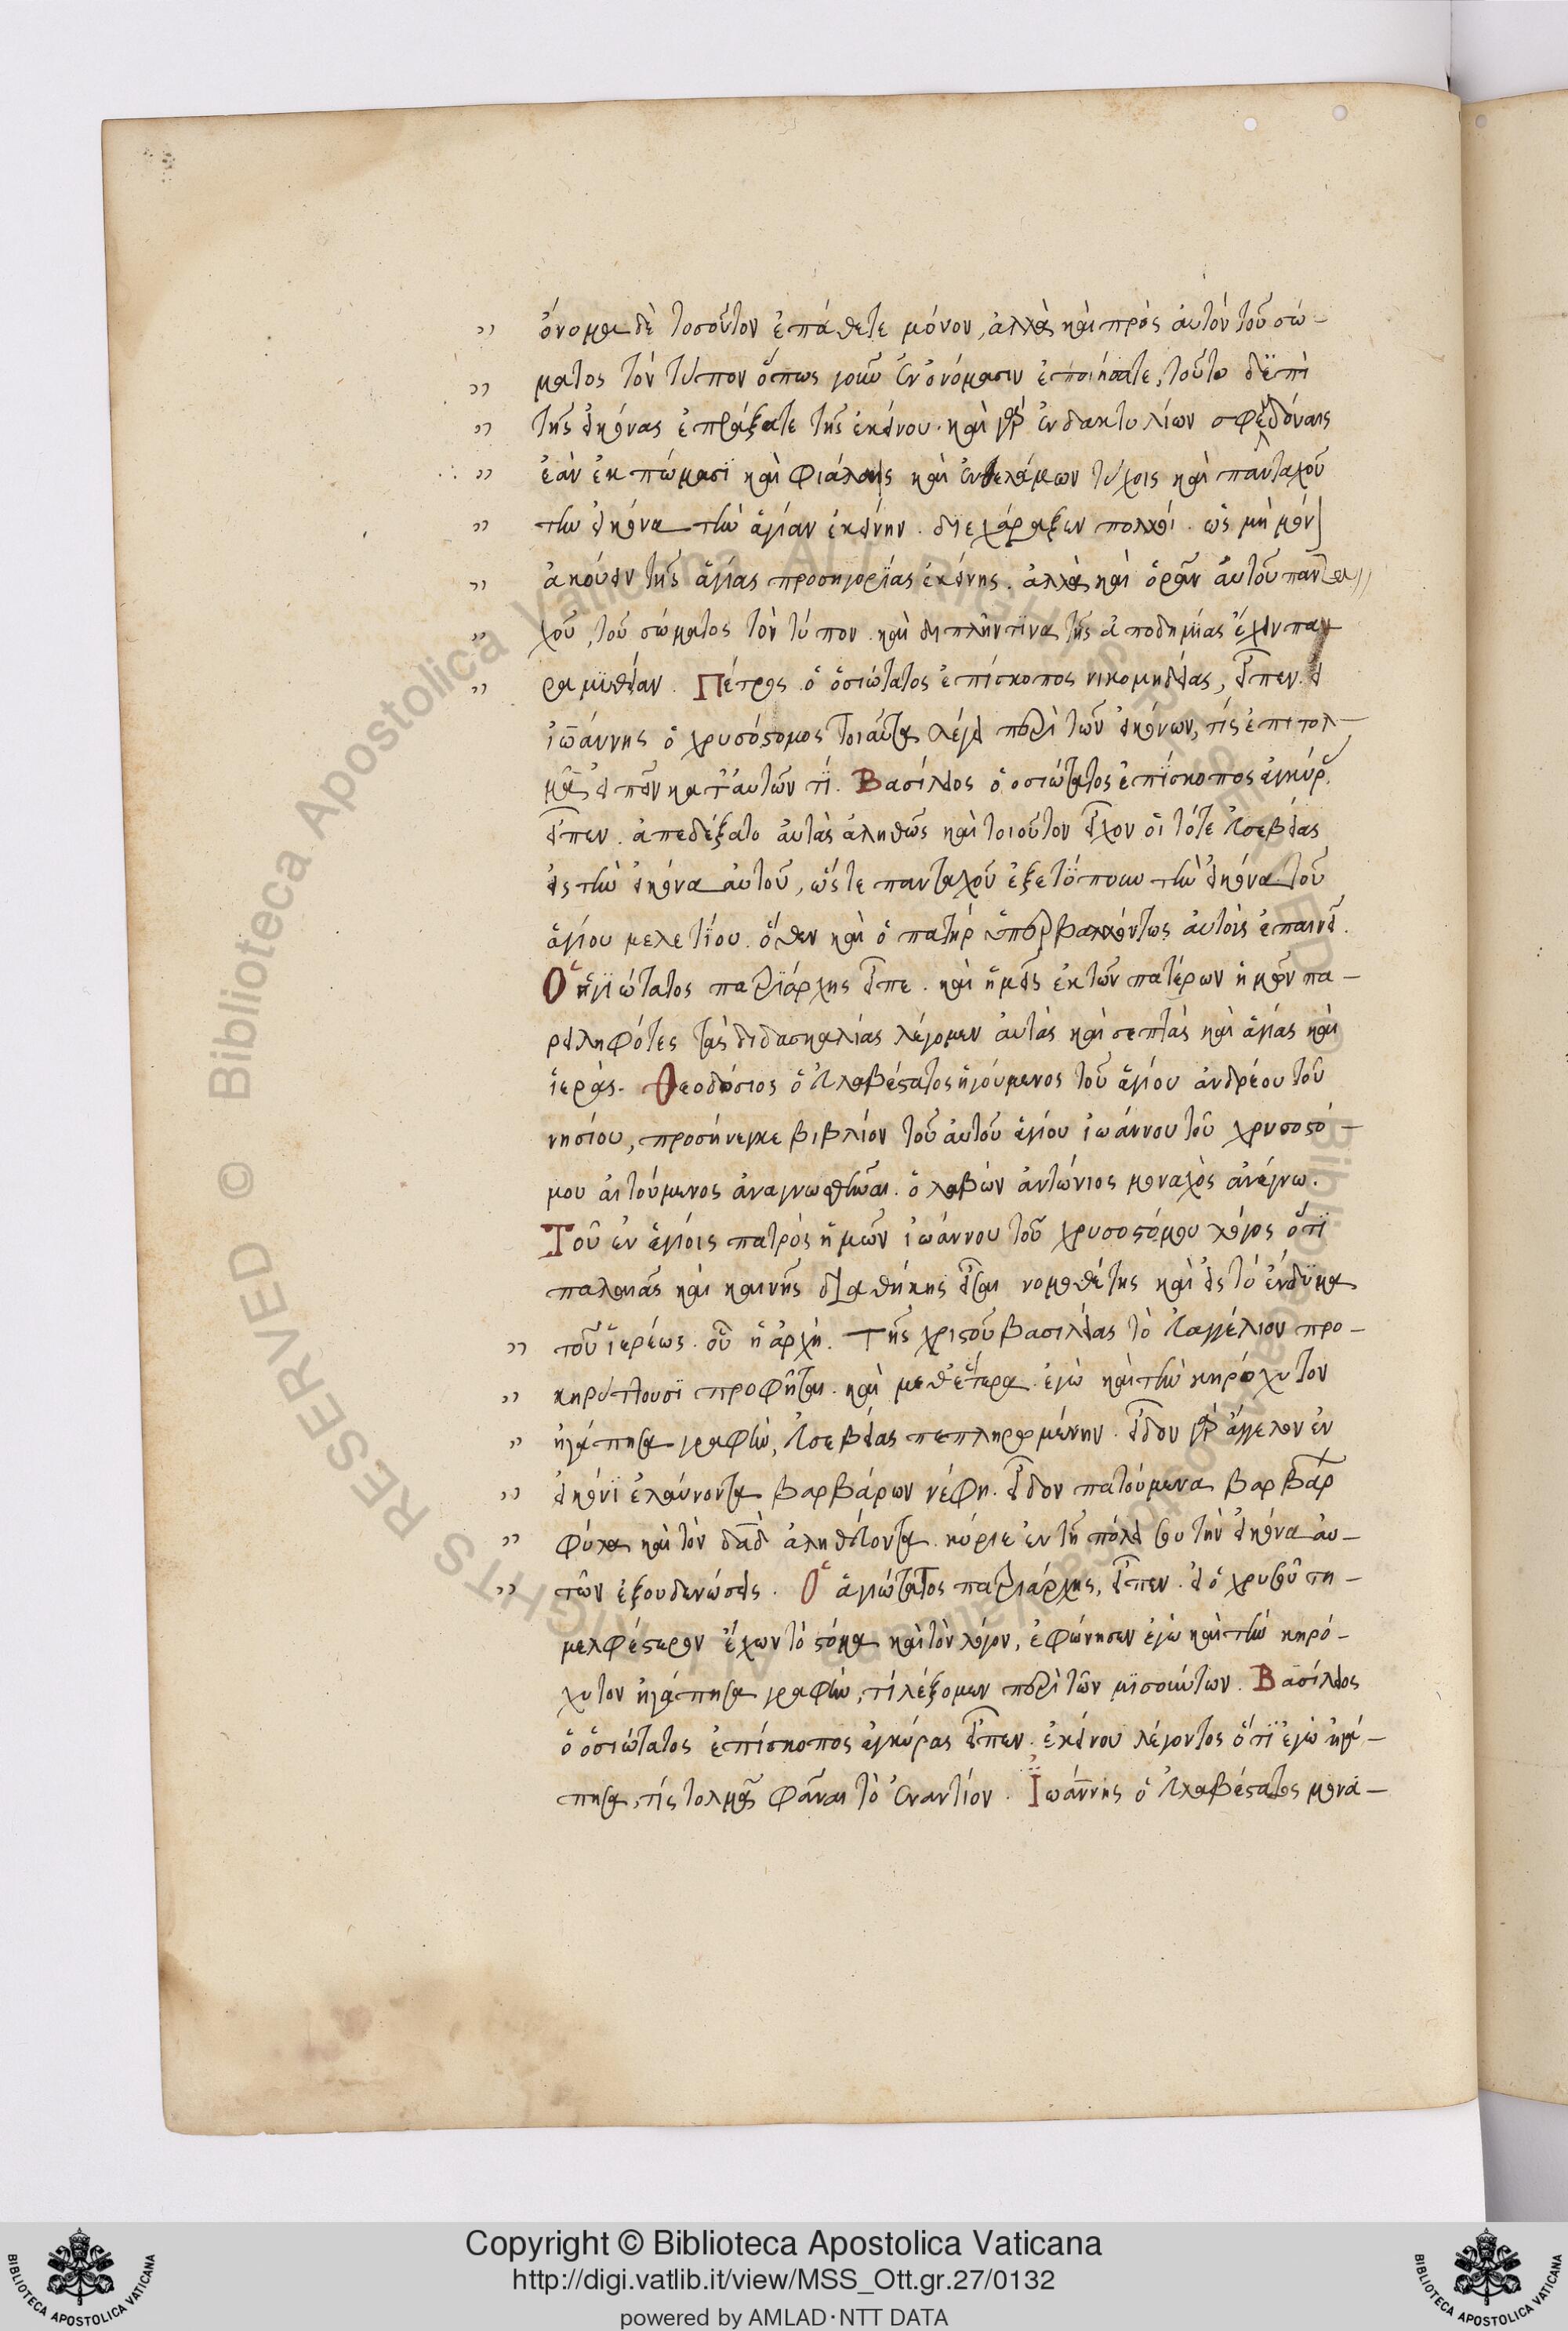 ὄνομα δὲ τοσοῦτον ἐπάθετε μόνον, ἀλλὰ καὶ πρὸς αὐτὸν τοῦ σώ-
ματος τὸν τύπον ὅπως γοῦν ἐν ὀνόμασιν ἐποιήσατε, τοῦτο δἐπὶ
τῆς εἰκόνας ἐπράξατε τῆς ἐκείνου. καὶ γὰρ ἐν δακτυλίων σφενδόναις
ἐὰν ἐκπώμασϊ καὶ φιάλαις καὶ ἐν θαλάμων τύχοις καὶ πανταχοῦ
τὴν εἰκόνα τὴν ἁγίαν ἐκείνην. διεχάραξαν πολλοί. ὡς μὴ μόν
ἀκούειν τῆς ἁγίας προσηγορΐας ἐκείνης. ἀλλὰ καὶ ὁρᾶν αὐτοῦ παντα
χοῦ, τοῦ σώματος τὸν τύπον. καὶ διπλὴν τϊνα τῆς ἀποδημΐας ἔχειν πα
ραμϋθείαν. Πέτρος ὁ ὁσιώτατος ἐπίσκοπος νικομηδείας, εἶπεν. εἰ
ἰωάννης ὁ χρυσόστομος τοιαῦτα λέγει περὶ τῶν εἰκόνων, τίς ἔπι τολ-
μᾶ εἰπεῖν κατ' αὐτῶν τϊ. Βασίλειος ὁ ὁσιώτατος ἐπΐσκοπος ἀγκύρ
εἶπεν. ἀπεδέξατο αὐτὰς ἀληθῶς καὶ τοιοῦτον εἶχον οἱ τότε εὐσεβείας
εἰς τὴν εἰκόνα αὐτοῦ, ὥστε πανταχοῦ ἐξετΰπουν τὴν εἰκόνα τοῦ
ἁγίου μελετΐου. ὅθεν καὶ ὁ πατὴρ ὑπερβαλλόντως αὐτοὺς ἐπαινεῖ.
Ὁ ἁγιώτατος πατριάρχης εἶπε. καὶ ἡμεῖς ἐκ τῶν πατέρων ἡμῶν πα-
ρειληφότες τὰς διδασκαλίας λέγομεν αὐτὰς καὶ σεπτὰς καὶ ἁγίας καὶ
ἱεράς. Θεοδόσιος ὁ εὐλαβέστατος ἡγούμενος τοῦ ἁγίου ἀνδρέου τοῦ
νησίου, προσήνεγκε βιβλίον τοῦ αὐτοῦ ἁγίου ἰωάννου τοῦ χρυσοστό-
μου αἰτούμενος ἀναγνωσθῆναι. ὁ λαβὼν ἀντώνιος μοναχὸς ἀνέγνω.
Τοῦ ἐν ἁγίοις πατρὸς ἡμῶν ἰωάννου τοῦ χρυσοστόμου λόγος ὅτϊ
παλαιᾶς καὶ καινῆς διαθήκης εἷς νομοθέτης καὶ εἰς τὸ ἔνδϋμα
τοῦ ἱερέως. οὗ ἡ ἀρχή. Τῆς χριστοῦ βασιλείας τὸ εὐαγγέλιον προ-
κηρύττουσϊ προφῆται. καὶ μεθ' ἕτερα. ἐγὼ καὶ τὴν κηρόχυτον
ἠγάπησα γραφὴν, εὐσεβείας πεπληρωμένην. εἶδον γὰρ ἄγγελον ἐν
εἰκόνϊ ἐλαύνοντα βαρβάρων νέφη. εἶδον πατούμενα βαρβάρ
φύλα καὶ τὸν δαδ ἀληθεύοντα. κύριε ἐν τῆ πόλει σου τὴν εἰκόνα αὐ-
τῶν ἐξουδενώσεις. Ὁ ἁγιώτατος πατριάρχης, εἶπεν. εἰ ὁ χρυσοῦ τι-
μαλφέστερον ἔχων τὸ στόμα καὶ τὸν λόγον, ἐφώνησεν ἐγὼ καὶ τὴν κηρό-
χυτον ἠγάπησα γραφὴν, τί λέξομεν περὶ τῶν μϊσούντων. Βασίλειος
ὁ ὁσιώτατος ἐπίσκοπος ἀγκύρας εἶπεν. ἐκείνου λέγοντος ὅτϊ ἐγὼ ἠγά-
πησα, τίς τολμᾶ φᾶναι τὸ ἐναντίον. Ἰωάννης ὁ εὐλαβέστατος μονα-
Copyright © Biblioteca Apostolica Vaticana
http://digi.vatlib.it/view/MSS_Ott.gr.27/0132
powered by AMLAD·NTT DATA